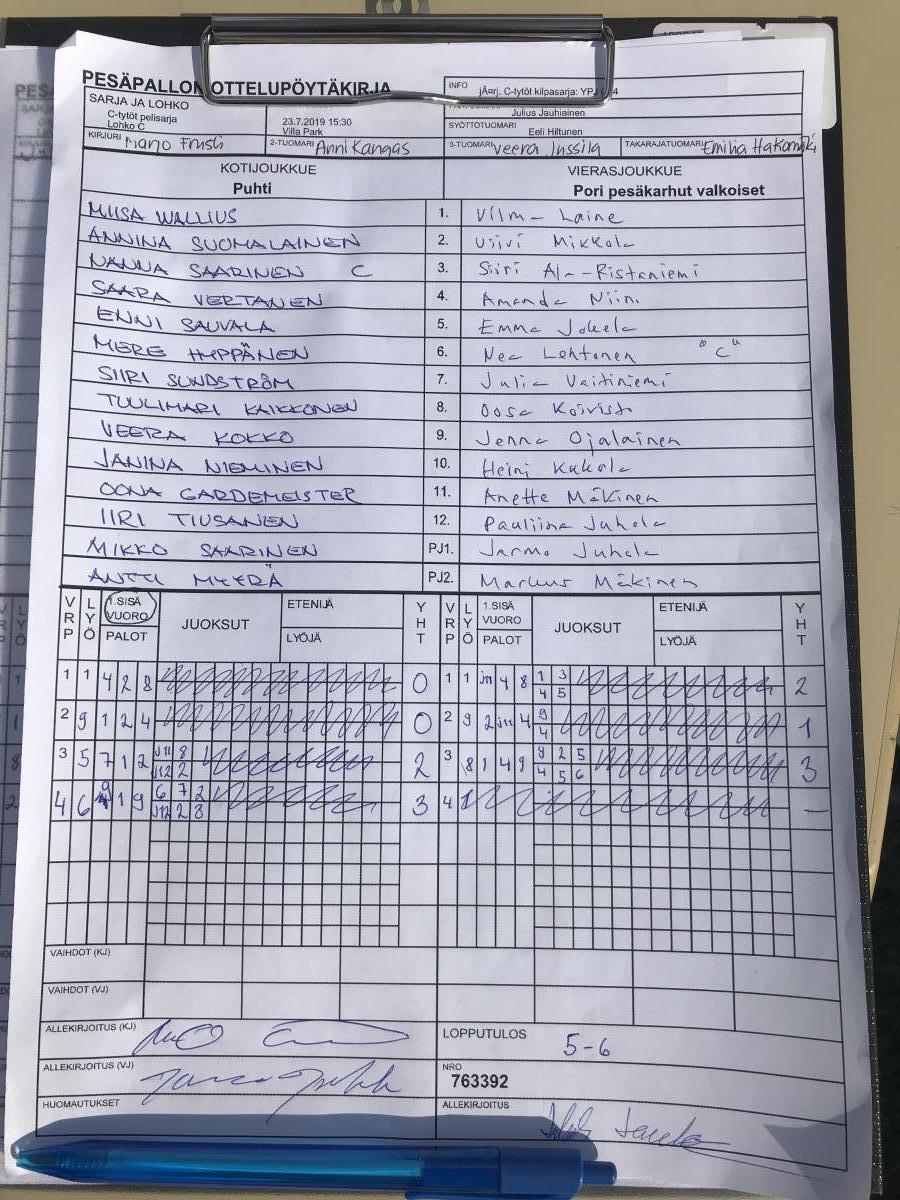 PESÄPALLON OTTELUPÖYTÄKIRJA
INFO jÄ¤rj. C-tytöt kilpasarja: YPJ
SARJA JA LOHKO
C-tytöt pelisarja
Lohko C
23.7.2019 15:30
Villa Park
Julius Jauhiainen
SYÖTTÖTUOMARI Eeli Hiltunen
KIRJURI Marjo Frusti 2-TUOMARI Anni Kangas 3-TUOMARI Veera Jussila TAKARAJATUOMARI Emilia Hakomäki
KOTIJOUKKUE VIERASJOUKKUE
Puhti Pori pesäkarhut valkoiset
MIISA WALLIUS 1. Vilma Laine
ANNINA SUOMALAINEN 2. Viivi Mikkola
NANNA SAARINEN C 3. Siiri Ala-Ristaniemi
SAARA VERTANEN 4. Amanda Niini
ENNI SAUVALA 5. Emma Jokela
MERE HYPPÄNEN 6. Nea Lehtonen "C"
SIIRI SUNDSTRÖM 7. Julia Vaitiniemi
TUULIMARI KAIKKONEN 8. Oosa Koivisto
VEERA KOKKO 9. Jenna Ojalainen
JANINA NIEMINEN 10. Heini Kukola
OONA GARDEMEISTER 11. Anette Mäkinen
IIRI TIUSANEN 12. Pauliina Juhola
MIKKO SAARINEN PJ1. Jarmo Juhola
ANTTI MYYRÄ PJ2. Markus Mäkinen
VRP LYÖ 1.SISÄ VUORO PALOT JUOKSUT ETENIJÄ LYÖJÄ YHT VRP LYÖ 1.SISÄ VUORO PALOT JUOKSUT ETENIJÄ LYÖJÄ YHT
1 1 4 2 8 0 1 1 jn 4 8 1 3 2
4 5
2 9 1 2 4 0 2 9 2 jn 4 9 1
4
3 5 7 1 2 J11 8 2 3 8 1 4 9 9 2 5 3
J12 2 4 5 6
4 6 9 1 9 6 7 2 3 4 1 –
J12 2 8
VAIHDOT (KJ)
VAIHDOT (VJ)
ALLEKIRJOITUS (KJ) LOPPUTULOS 5-6
ALLEKIRJOITUS (VJ) NRO
763392
HUOMAUTUKSET ALLEKIRJOITUS